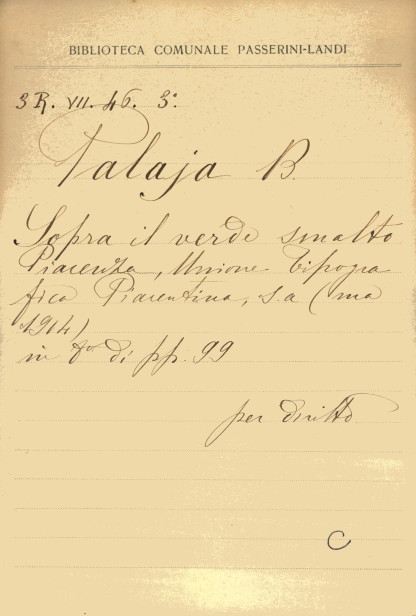 BIBLIOTECA COMUNALE PASSERINI-LANDI
3R. VII. 46. 3°.
Palaja B.
Sopra il verde smalto
Piacenza, Unione Tipogra
fica Piacentina, s.a (ma
1914)
in 8° di pp. 99
per diritto
C